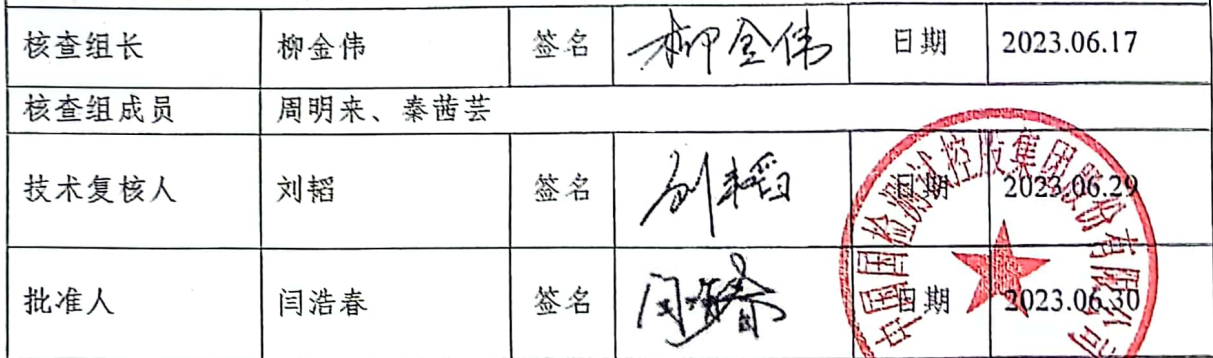 核查组长 柳金伟 签名 柳金伟 日期 2023.06.17
核查组成员 周明来、秦茜芸
技术复核人 刘韬 签名 刘韬 日期 2023.06.29
批准人 闫浩春 签名 闫浩春 日期 2023.06.30
中国国检测试控股集团股份有限公司